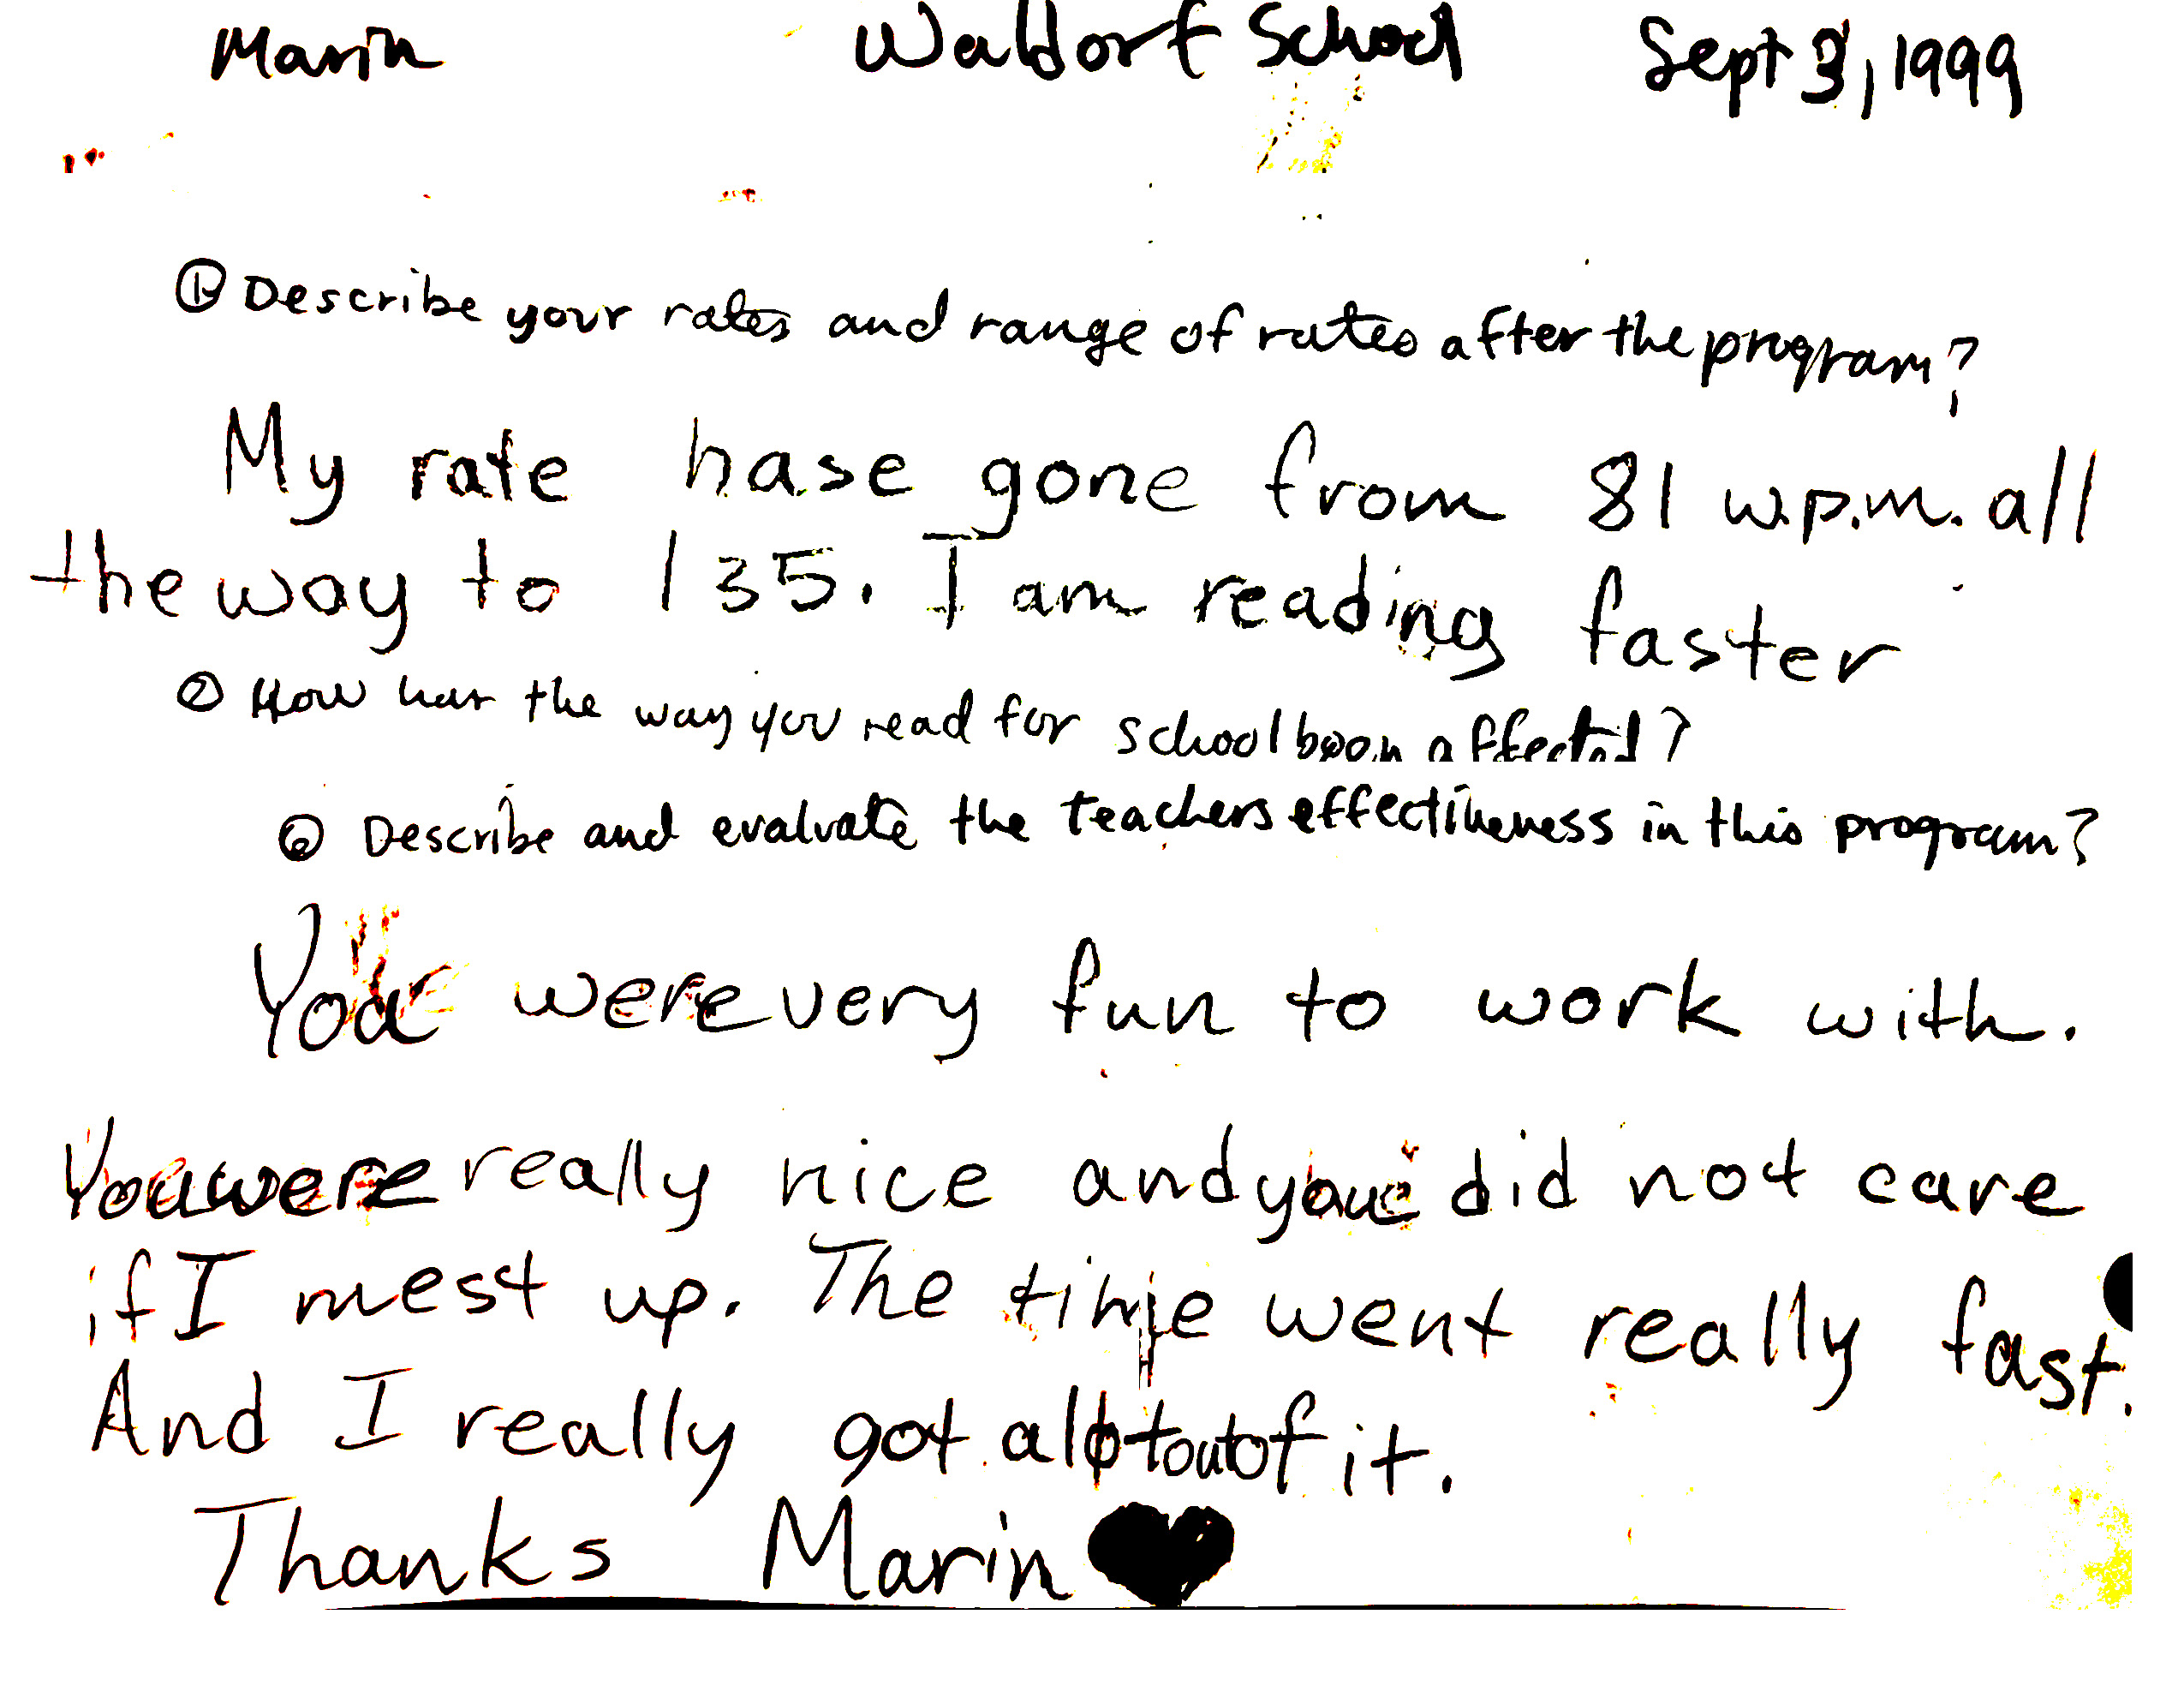 Marin Waldorf School Sept 3, 1999
① Describe your rates and range of rates after the program?
My rate hase gone from 81 w.p.m. all
the way to 135. I am reading faster
② How has the way you read for school been affected?
⑥ Describe and evaluate the teachers effectiveness in this program?
You were very fun to work with.
You were really nice and you did not care
if I mest up. The time went really fast.
And I really got alot out of it.
Thanks Marin